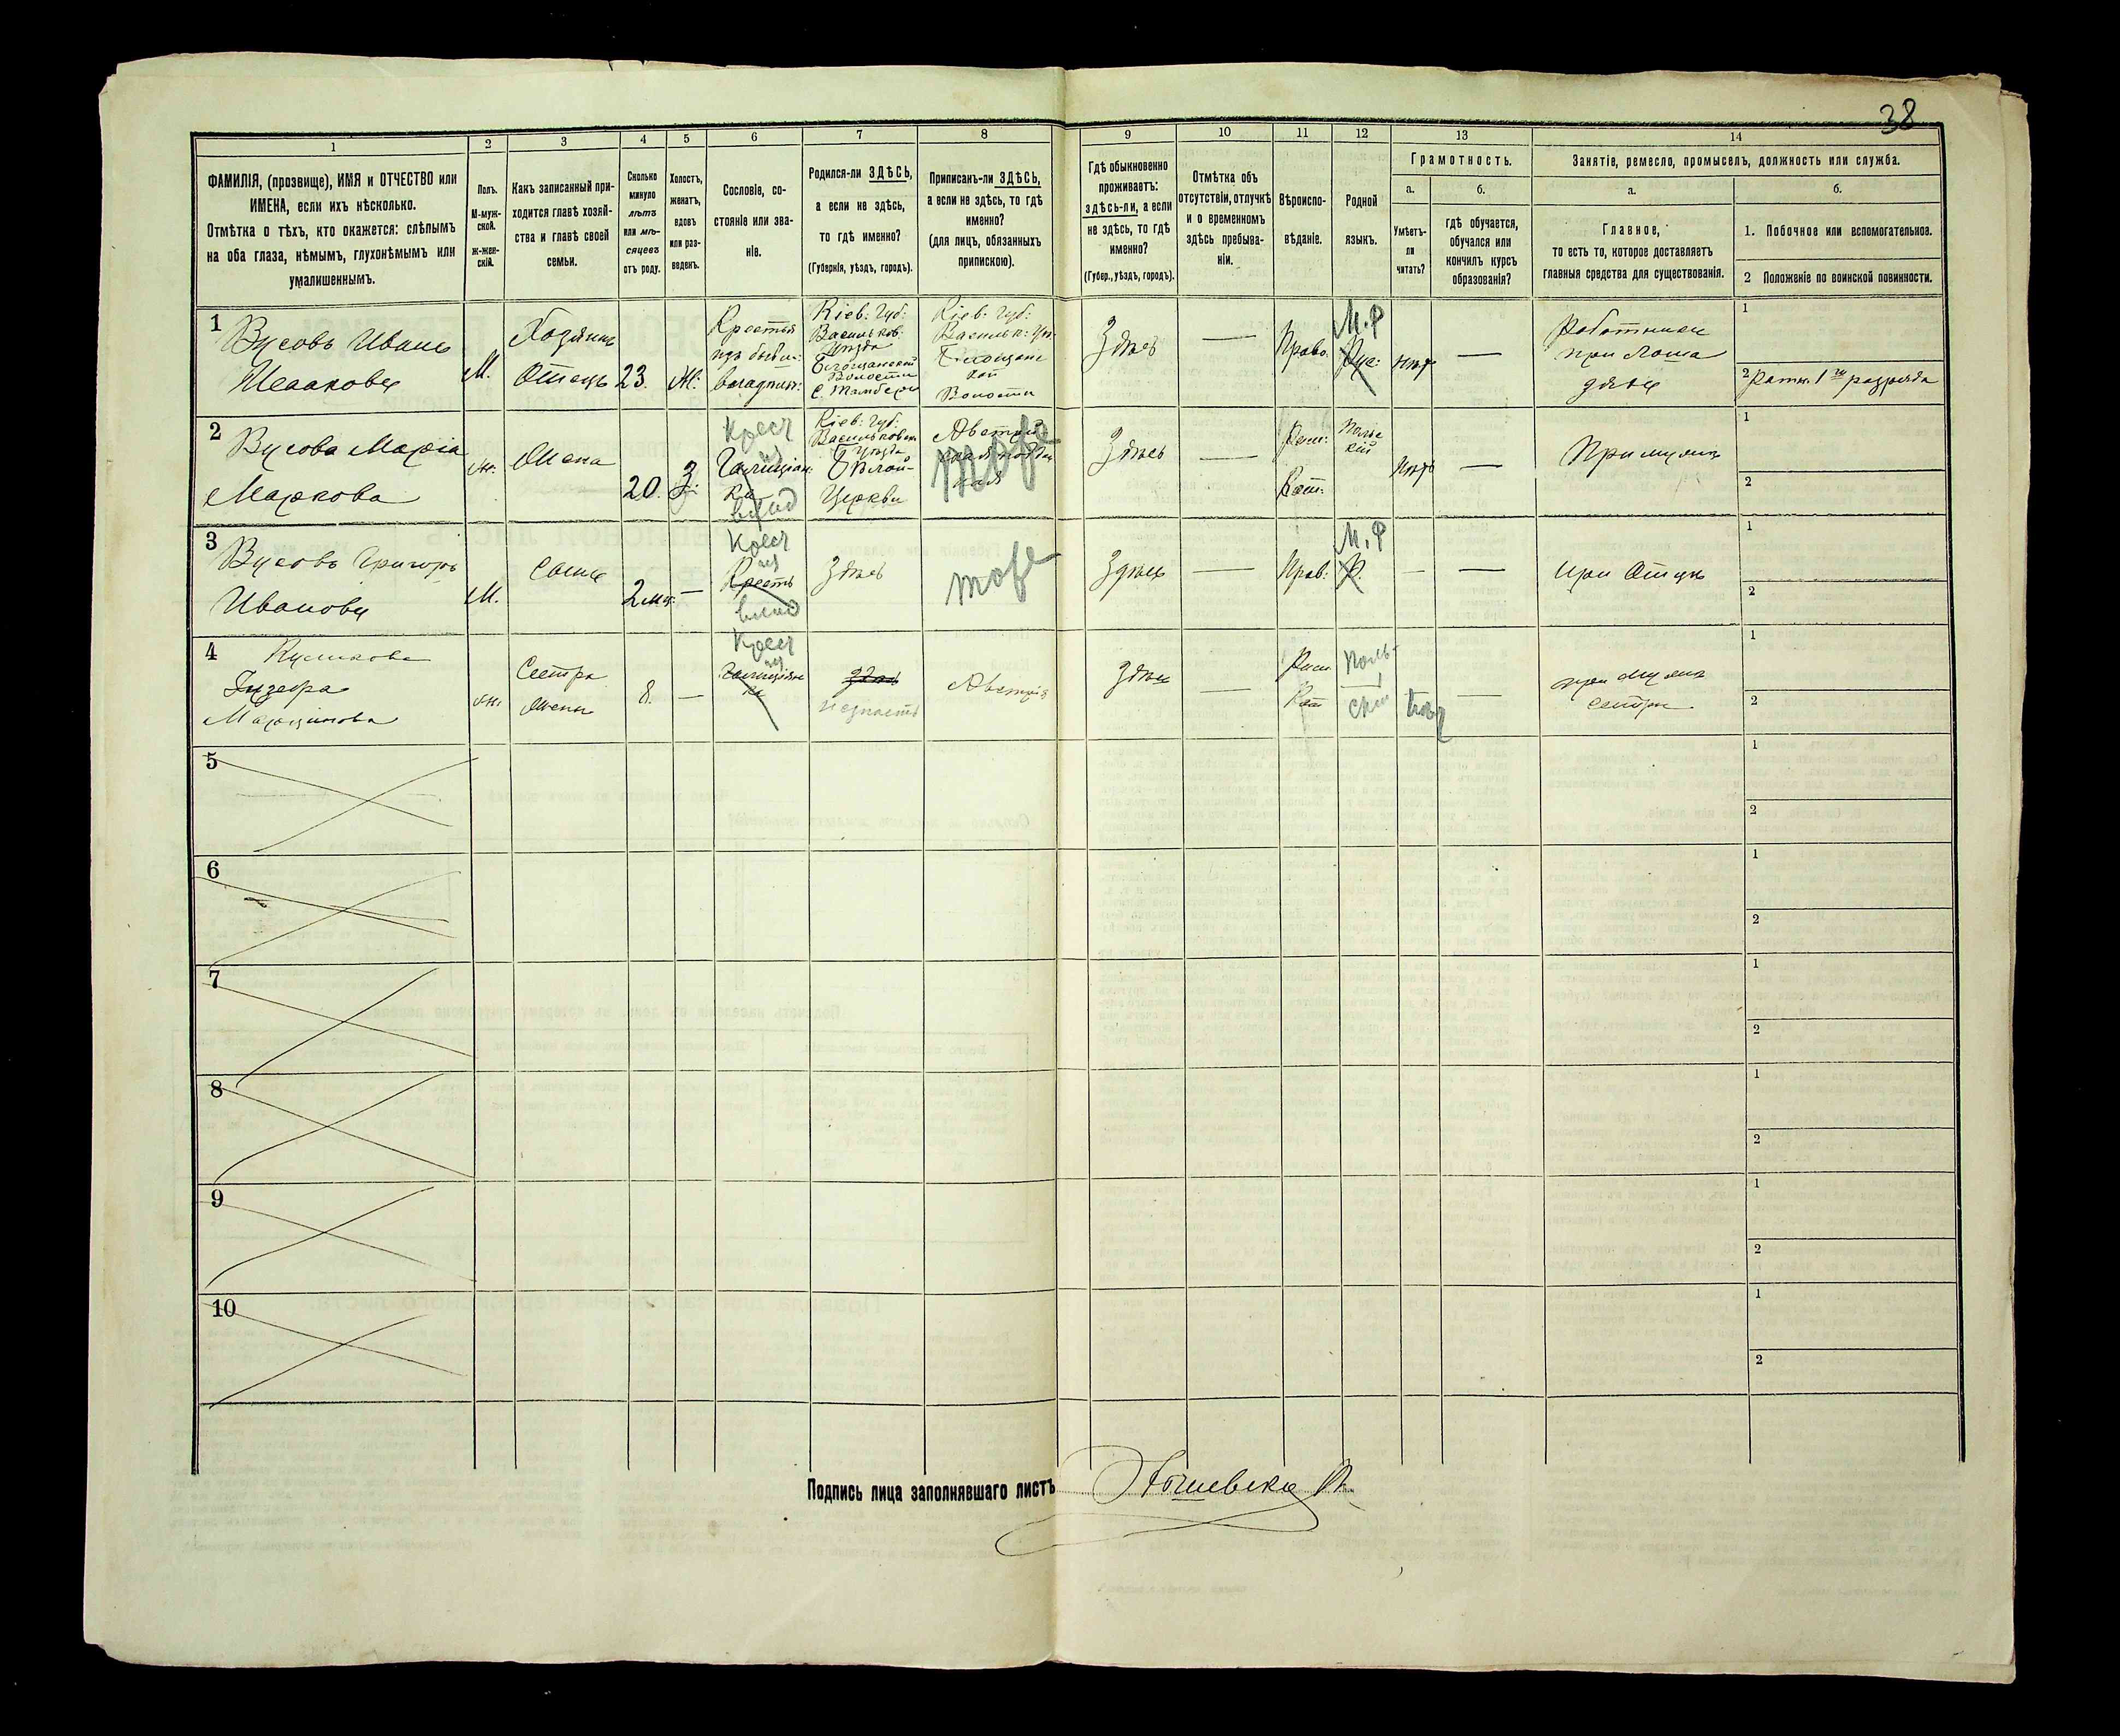 38
1
2
3
4
5
6
7
8
9
10
11
12
13
14
ФАМИЛІЯ, (прозвище), ИМЯ и ОТЧЕСТВО или
ИМЕНА, если ихъ нѣсколько.
Отмѣтка о тѣхъ, кто окажется: слѣпымъ
на оба глаза, нѣмымъ, глухонѣмымъ или
умалишеннымъ.
Полъ.
М-муж-
ской.
ж-жен-
скій.
Какъ записанный при-
ходится главѣ хозяй-
ства и главѣ своей
семьи.
Сколько
минуло
лѣтъ
или мѣ-
сяцевъ
отъ роду.
Холостъ,
женатъ,
вдовъ
или раз-
веденъ.
Сословіе, со-
стояніе или зва-
ніе.
Родился-ли ЗДѢСЬ,
а если не здѣсь,
то гдѣ именно?
(Губернія, уѣздъ, городъ).
Приписанъ-ли ЗДѢСЬ,
а если не здѣсь, то гдѣ
именно?
(для лицъ, обязанныхъ
припискою).
Гдѣ обыкновенно
проживаетъ:
здѣсь-ли, а если
не здѣсь, то гдѣ
именно?
(Губер., уѣздъ, городъ).
Отмѣтка объ
отсутствіи, отлучкѣ
и о временномъ
здѣсь пребыва-
ніи.
Вѣроиспо-
вѣданіе.
Родной
языкъ.
Грамотность.
а.
Умѣетъ-
ли
читать?
б.
гдѣ обучается,
обучался или
кончилъ курсъ
образованія?
Занятіе, ремесло, промыселъ, должность или служба.
а.
Главное,
то есть то, которое доставляетъ
главныя средства для существованія.
б.
1. Побочное или вспомогательное.
2 Положеніе по воинской повинности.
1
Иванъ
М.
Хозяинъ
Отецъ
23.
Ж:
Кіев: Губ:
Уѣзда
Волости
Кіев: Губ:
Волости
Здѣсь
Право.
М.Р
Рус:
нѣт
Работникъ
при лоша
дяхъ
1
2 Ратн. 1го разряда
2
Вусова Марія
Маркова
Ж.
Жена
20.
З.
Крест
Кіев: Губ:
Уѣзда
Церкви
тоже
Здѣсь
Рим:
Кат:
Поль
скій
Нѣтъ
При мужѣ
1
2
3
Вусовъ Григорь
Ивановъ
М.
Сынъ
2 мц.
Крест
Здѣсь
тоже
Здѣсь
Прав:
М.Р
Р.
при Отцѣ
1
2
4
Ж:
Сестра
жены
8.
Крест
здѣсь
Австрія
здѣсь
Рим
Кат
Поль-
ский
при мужѣ
сестры
1
2
5
1
2
6
1
2
7
1
2
8
1
2
9
1
2
10
1
2
Подпись лица заполнявшаго листъ